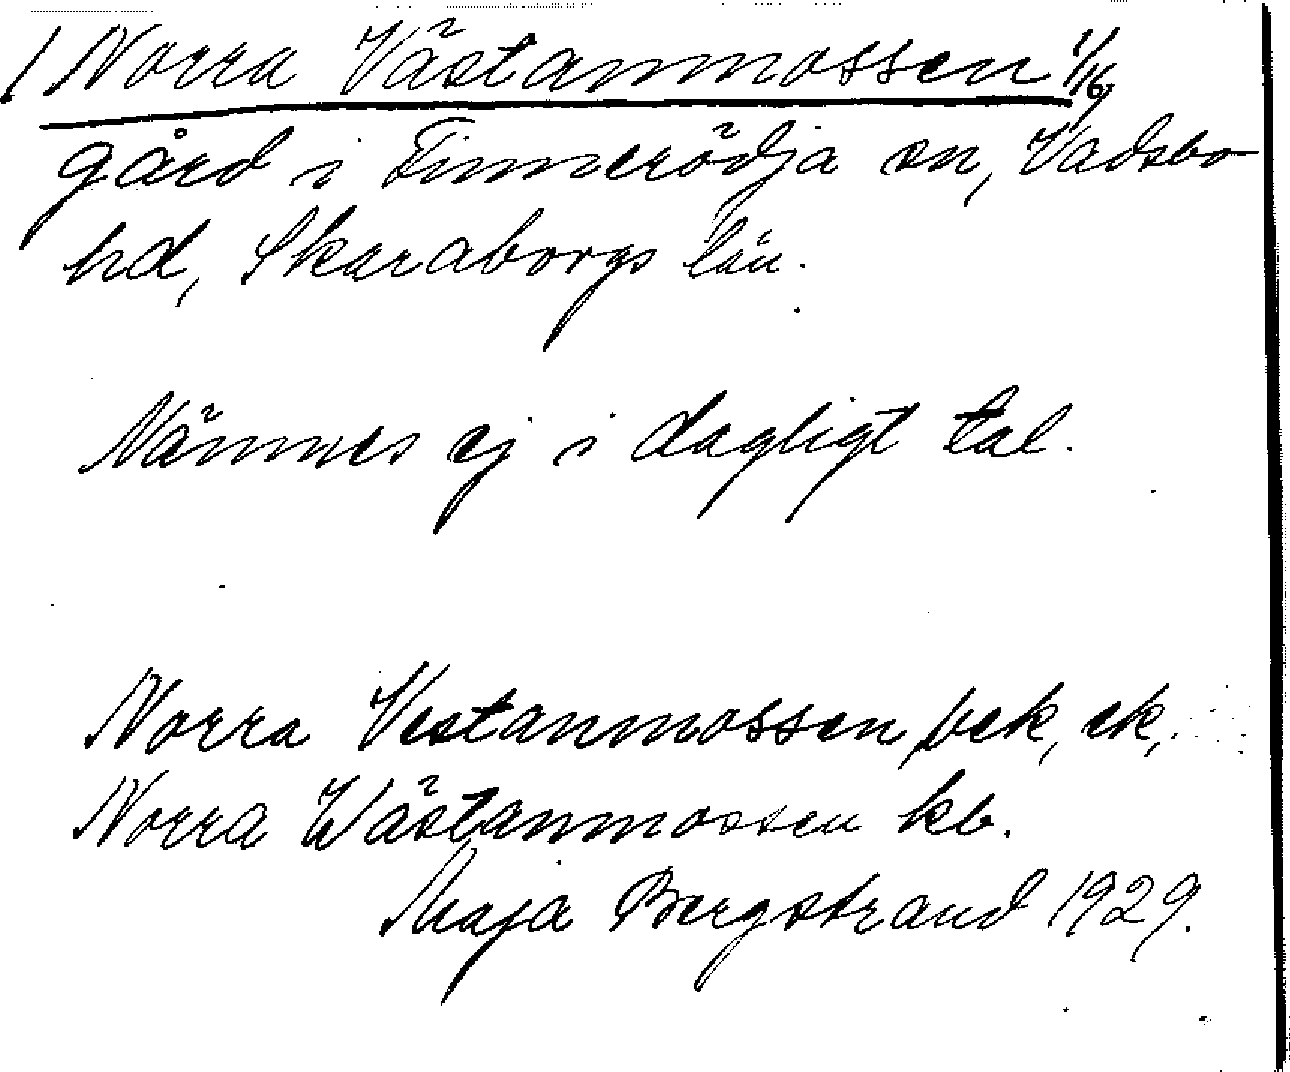 / Norra Västanmossen 1/16
gård i Finnerödja sn, Vadsbo
hd, Skaraborgs län.
Nämnes ej i dagligt tal.
Norra Vestanmossen jbek, ek,
Norra Wästanmossen kb.
Maja Bergstrand 1929.